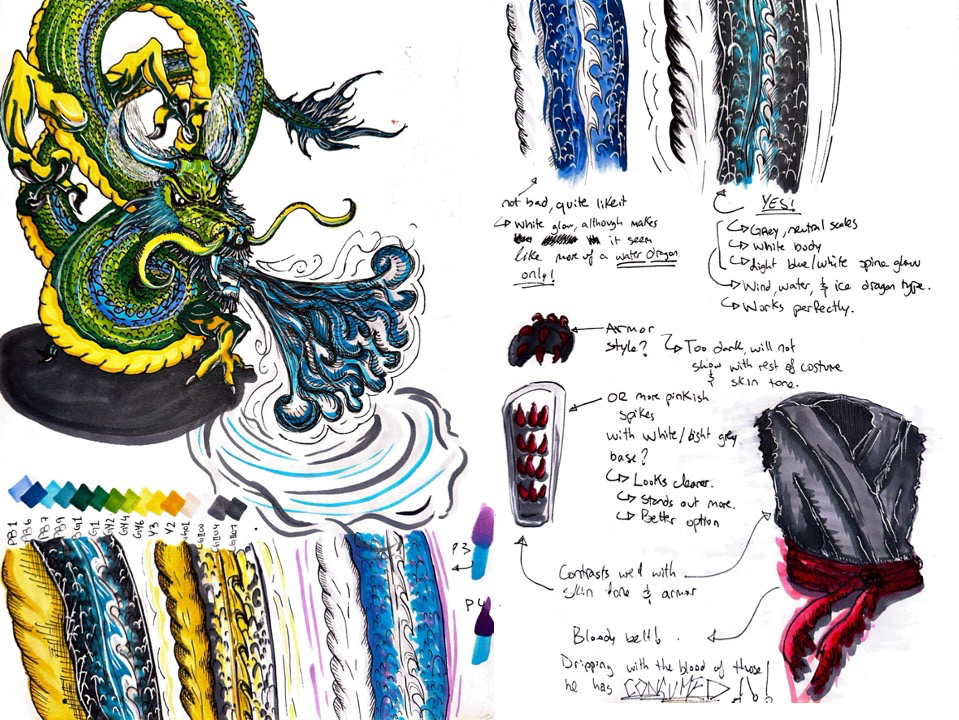 not bad, quite like it
White glow, although makes
it seem
like more of a water dragon
only!
YES!
Grey, neutral scales
White body
Light blue/white spine glow
Wind, water, & ice dragon type.
Works perfectly.
Armor
style?
Too dark, will not
show with rest of costume
& skin tone.
OR more pinkish
spikes
with white/light grey
base?
Looks clearer.
Stands out more.
Better option
Contrasts well with
skin tone & armor
Bloody belt!
Dripping with the blood of those
he has CONSUMED!!
PB1
PB6
PB7
PB9
BG1
G1
GY2
GY4
GY6
Y3
Y2
P3
P4